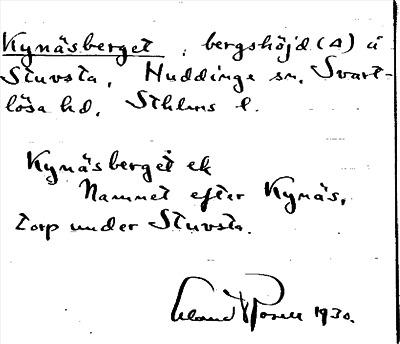 Kynäsberget, bergshöjd (A) å
Stuvsta, Huddinge sn, Svart-
lösa hd, Sthlms l.
Kynäsberget ek
Namnet efter Kynäs,
torp under Stuvsta.
1930.